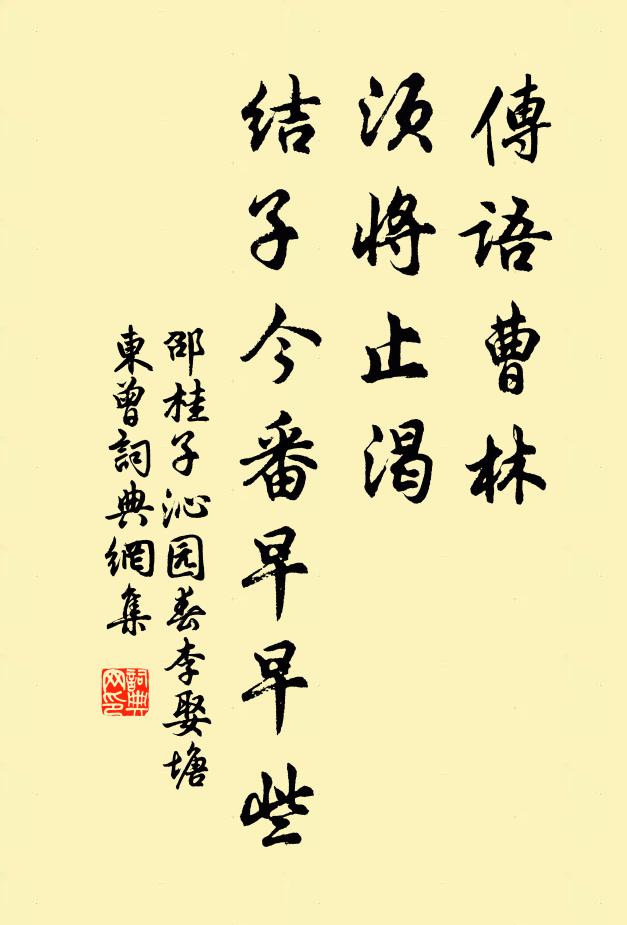 傳語曹林
須將止渴
結子今番早早些
邵桂子沁园春李娶塘
東曾詞典網集
詞典
网印